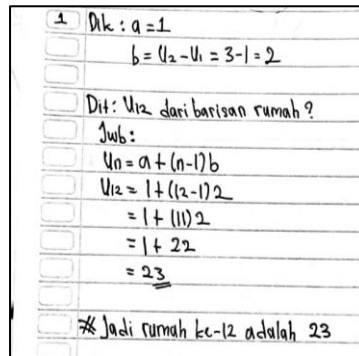 1 Dik : a = 1
b = U2 - U1 = 3-1 = 2
Dit : U12 dari barisan rumah ?
Jwb :
Un = a + (n-1) b
U12 = 1 + (12-1) 2
= 1 + (11) 2
= 1 + 22
= 23
* Jadi rumah ke-12 adalah 23